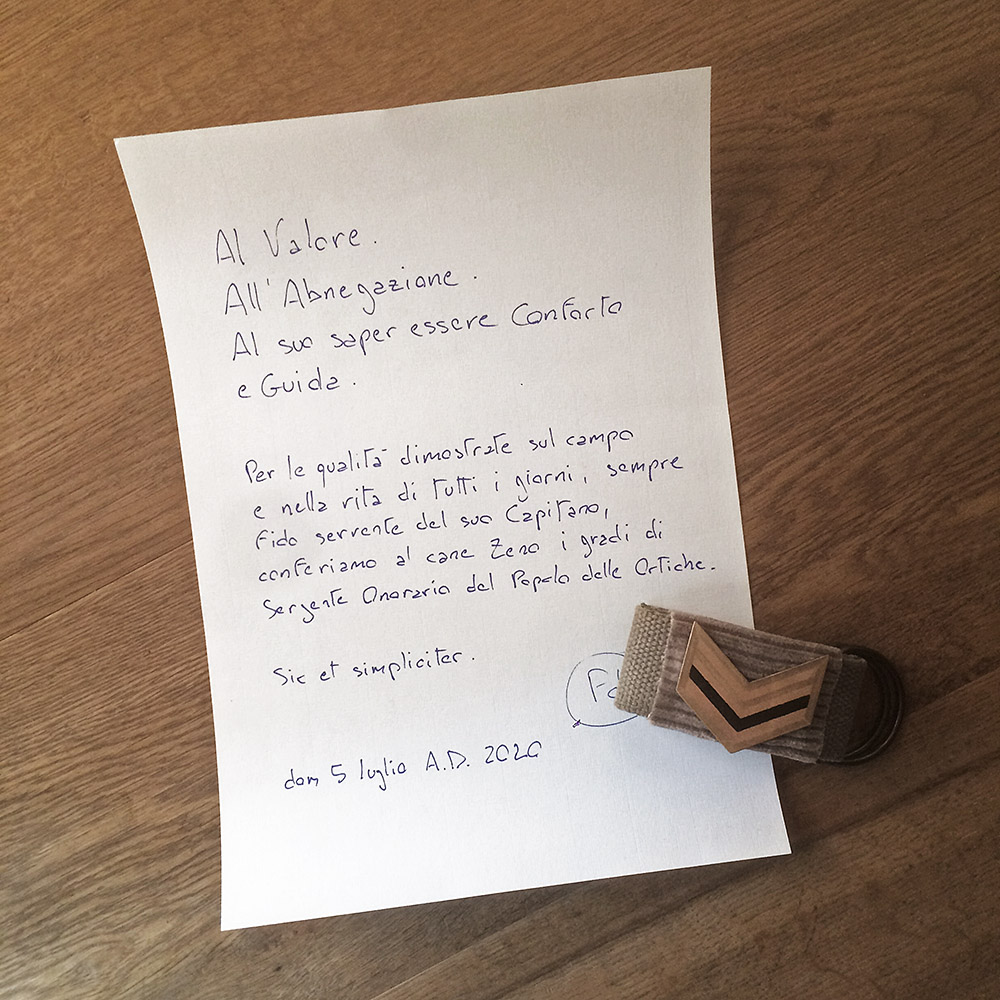 Al Valore.
All'Abnegazione.
Al suo saper essere Conforto
e Guida.
Per le qualità dimostrate sul campo
e nella vita di tutti i giorni, sempre
fido servente del suo Capitano,
conferiamo al cane Zeno i gradi di
Sergente Onorario del Popolo delle Ortiche.
Sic et simpliciter.
dom 5 luglio A.D. 2020